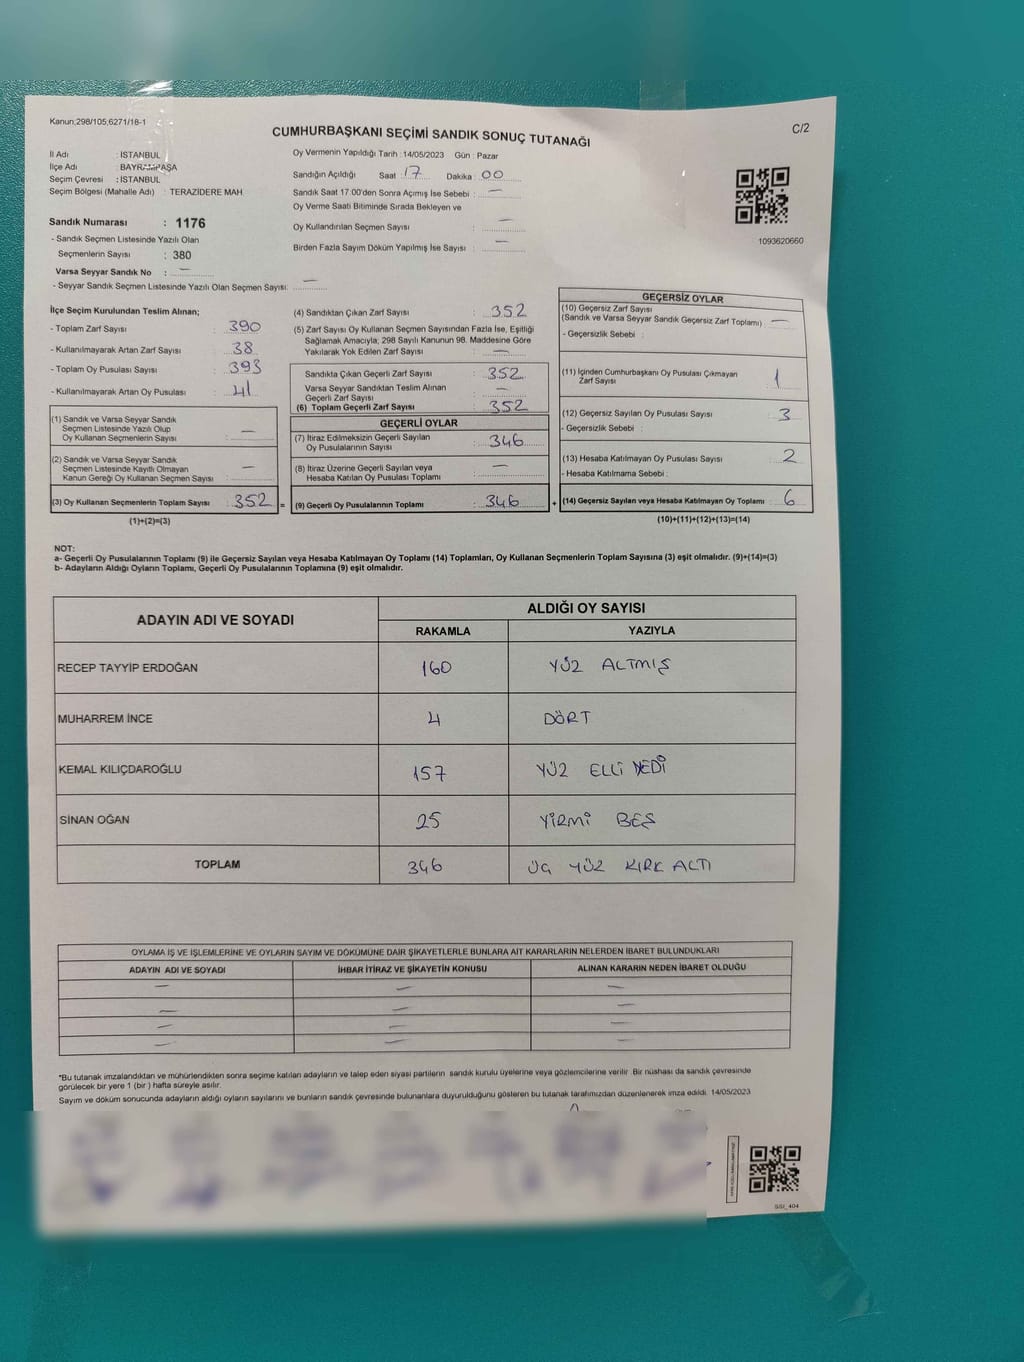 Kanun;298/105,6271/18-1
CUMHURBAŞKANI SEÇİMİ SANDIK SONUÇ TUTANAĞI
C/2
İl Adı : İSTANBUL
İlçe Adı : BAYRAMPAŞA
Seçim Çevresi : İSTANBUL
Seçim Bölgesi (Mahalle Adı) : TERAZİDERE MAH.
Sandık Numarası : 1176
- Sandık Seçmen Listesinde Yazılı Olan
Seçmenlerin Sayısı : 380
Varsa Seyyar Sandık No : —
- Seyyar Sandık Seçmen Listesinde Yazılı Olan Seçmen Sayısı: —
Oy Vermenin Yapıldığı Tarih : 14/05/2023 Gün : Pazar
Sandığın Açıldığı Saat : 17 Dakika : 00
Sandık Saat 17.00'den Sonra Açımış İse Sebebi : —
Oy Verme Saati Bitiminde Sırada Bekleyen ve
Oy Kullandırılan Seçmen Sayısı : —
Birden Fazla Sayım Döküm Yapılmış İse Sayısı : —
1093620660
İlçe Seçim Kurulundan Teslim Alınan;
- Toplam Zarf Sayısı : 390
- Kullanılmayarak Artan Zarf Sayısı : 38
- Toplam Oy Pusulası Sayısı : 393
- Kullanılmayarak Artan Oy Pusulası : 41
(1) Sandık ve Varsa Seyyar Sandık
Seçmen Listesinde Yazılı Olup
Oy Kullanan Seçmenlerin Sayısı : —
(2) Sandık ve Varsa Seyyar Sandık
Seçmen Listesinde Kayıtlı Olmayan
Kanun Gereği Oy Kullanan Seçmen Sayısı : —
(3) Oy Kullanan Seçmenlerin Toplam Sayısı : 352 =
(1)+(2)=(3)
(4) Sandıktan Çıkan Zarf Sayısı : 352
(5) Zarf Sayısı Oy Kullanan Seçmen Sayısından Fazla İse, Eşitliği
Sağlamak Amacıyla; 298 Sayılı Kanunun 98. Maddesine Göre
Yakılarak Yok Edilen Zarf Sayısı : —
Sandıkta Çıkan Geçerli Zarf Sayısı : 352
Varsa Seyyar Sandıktan Teslim Alınan
Geçerli Zarf Sayısı : —
(6) Toplam Geçerli Zarf Sayısı : 352
GEÇERLİ OYLAR
(7) İtiraz Edilmeksizin Geçerli Sayılan
Oy Pusulalarının Sayısı : 346
(8) İtiraz Üzerine Geçerli Sayılan veya
Hesaba Katılan Oy Pusulası Toplamı : —
(9) Geçerli Oy Pusulalarının Toplamı : 346 +
GEÇERSİZ OYLAR
(10) Geçersiz Zarf Sayısı
(Sandık ve Varsa Seyyar Sandık Geçersiz Zarf Toplamı) : —
- Geçersizlik Sebebi :
(11) İçinden Cumhurbaşkanı Oy Pusulası Çıkmayan
Zarf Sayısı : 1
(12) Geçersiz Sayılan Oy Pusulası Sayısı : 3
- Geçersizlik Sebebi :
(13) Hesaba Katılmayan Oy Pusulası Sayısı : 2
- Hesaba Katılmama Sebebi :
(14) Geçersiz Sayılan veya Hesaba Katılmayan Oy Toplamı : 6
(10)+(11)+(12)+(13)=(14)
NOT:
a- Geçerli Oy Pusulalarının Toplamı (9) ile Geçersiz Sayılan veya Hesaba Katılmayan Oy Toplamı (14) Toplamları, Oy Kullanan Seçmenlerin Toplam Sayısına (3) eşit olmalıdır. (9)+(14)=(3)
b- Adayların Aldığı Oyların Toplamı, Geçerli Oy Pusulalarının Toplamına (9) eşit olmalıdır.
ADAYIN ADI VE SOYADI
ALDIĞI OY SAYISI
RAKAMLA YAZIYLA
RECEP TAYYİP ERDOĞAN 160 YÜZ ALTMIŞ
MUHARREM İNCE 4 DÖRT
KEMAL KILIÇDAROĞLU 157 YÜZ ELLİ YEDİ
SİNAN OĞAN 25 YİRMİ BEŞ
TOPLAM 346 ÜÇ YÜZ KIRK ALTI
OYLAMA İŞ VE İŞLEMLERİNE VE OYLARIN SAYIM VE DÖKÜMÜNE DAİR ŞİKAYETLERLE BUNLARA AİT KARARLARIN NELERDEN İBARET BULUNDUKLARI
ADAYIN ADI VE SOYADI İHBAR İTİRAZ VE ŞİKAYETİN KONUSU ALINAN KARARIN NEDEN İBARET OLDUĞU
— — —
— — —
— — —
— — —
*Bu tutanak imzalandıktan ve mühürlendikten sonra seçime katılan adayların ve talep eden siyasi partilerin sandık kurulu üyelerine veya gözlemcilerine verilir. Bir nüshası da sandık çevresinde
görülecek bir yere 1 (bir ) hafta süreyle asılır.
Sayım ve döküm sonucunda adayların aldığı oyların sayılarını ve bunların sandık çevresinde bulunanlara duyurulduğunu gösteren bu tutanak tarafımızdan düzenlenerek imza edildi. 14/05/2023
SSI_404